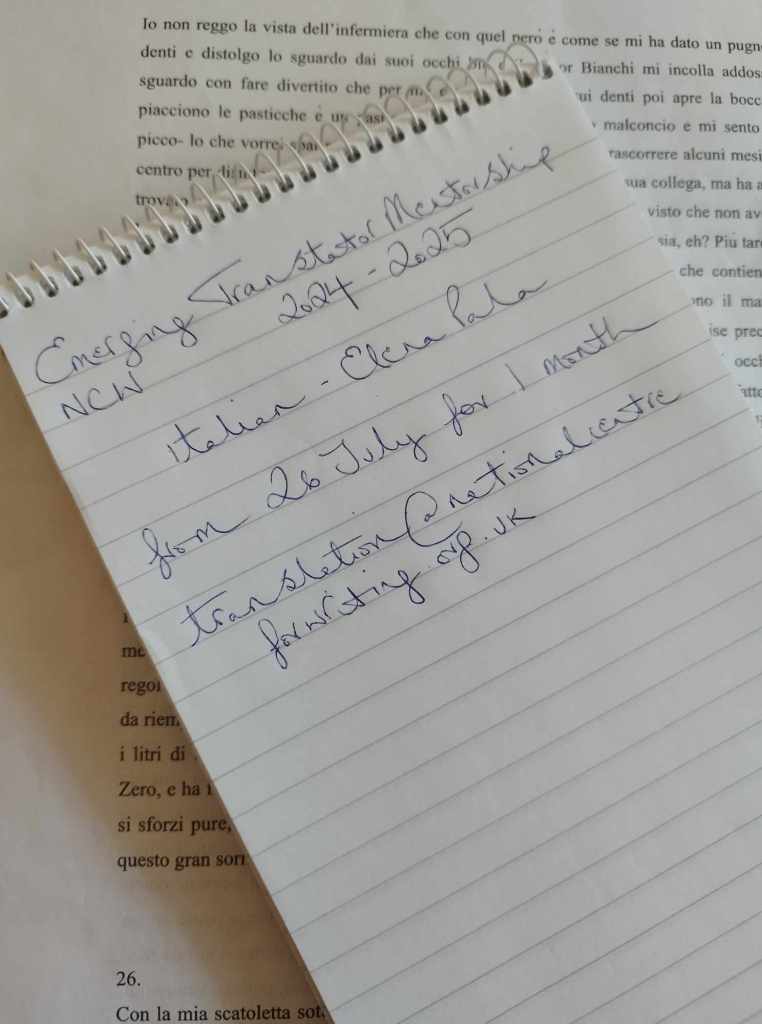 Io non reggo la vista dell'infermiera che con quel però è come se mi ha dato un pugno
denti e distolgo lo sguardo dai suoi occhi or Bianchi mi incolla addos
sguardo con fare divertito che per ui denti poi apre la bocc
piacciono le pasticche è un malconcio e mi sento
picco- lo che vorrei rascorrere alcuni mesi
centro per sua collega, ma ha a
trov visto che non av
sia, eh? Più tard
che contien
ono il ma
ise prec
occh
atto
Emerging Translator Mentorship
NCW 2024-2025
Italian - Elena Pala
from 26 July for 1 month
translation@nationalcentre
forwriting.org.uk
me
regol
da riem
i litri di
Zero, e ha i
si sforzi pure,
questo gran sorr
26.
Con la mia scatoletta sot